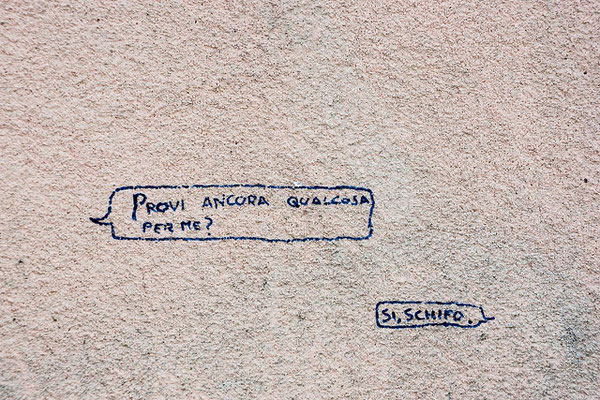 PROVI ANCORA QUALCOSA
PER ME?
SI, SCHIFO.